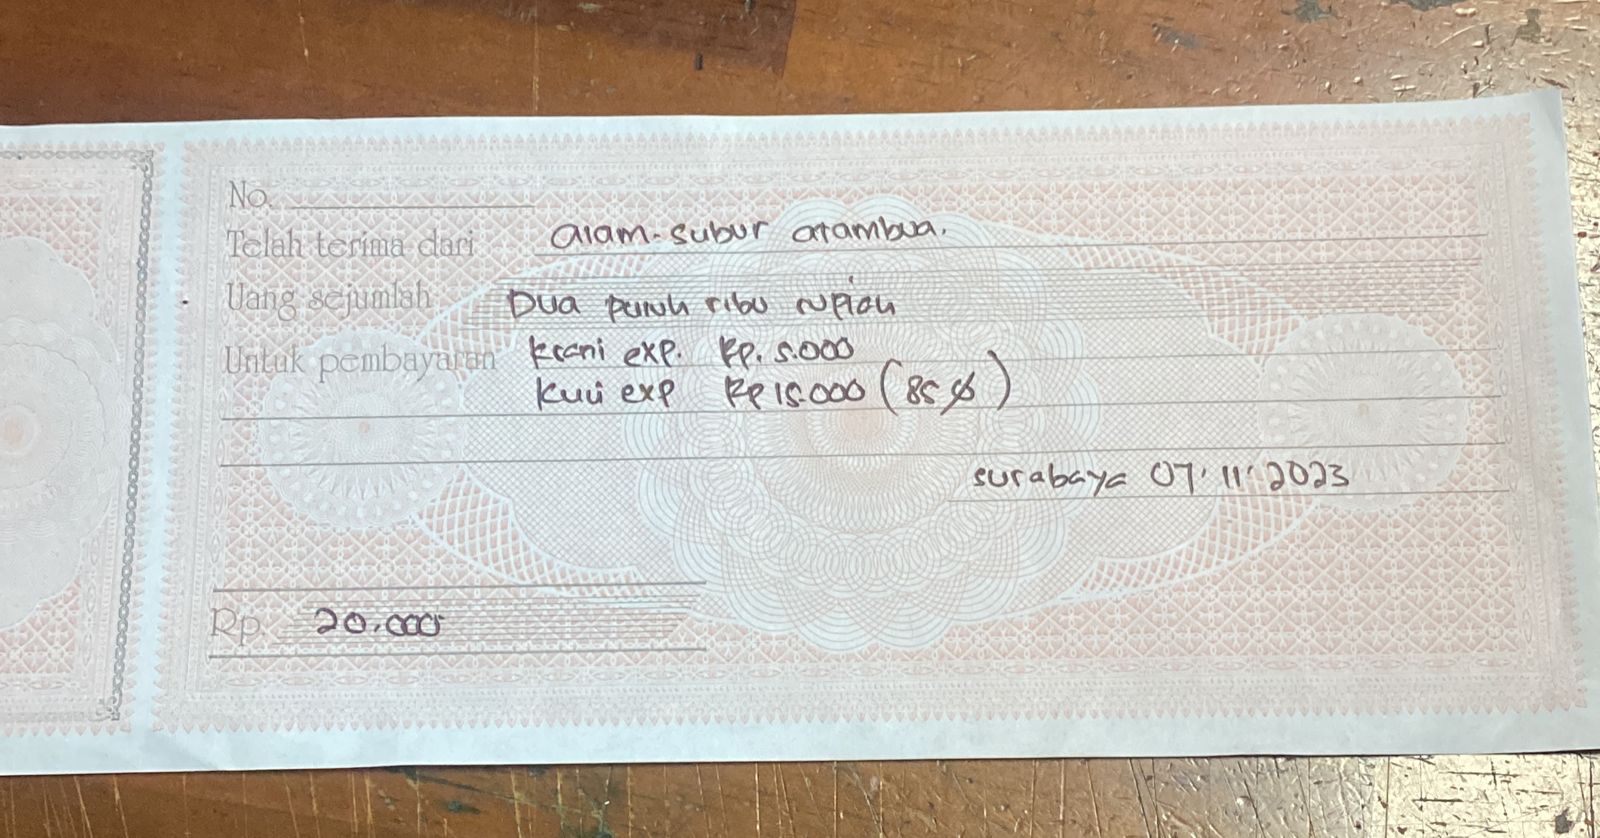 No.
Telah terima dari alam-subur atambua.
Uang sejumlah Dua puluh ribu rupiah
Untuk pembayaran krani exp. Rp. 5.000
kuli exp Rp 15.000 (85
surabaya 07'11'2023
Rp. 20.000